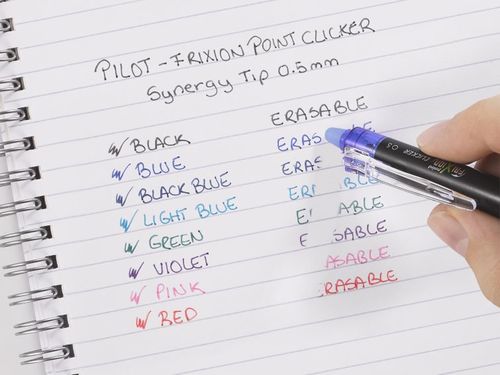 PILOT - FRIXION POINT CLICKER
Synergy Tip 0.5mm
ERASABLE
BLACK ERAS LE
BLUE ERAS
BLACK BLUE ER BLE
LIGHT BLUE E ABLE
GREEN E SABLE
VIOLET ASABLE
PINK RASABLE
RED
FRIXION CLICKER 0.5